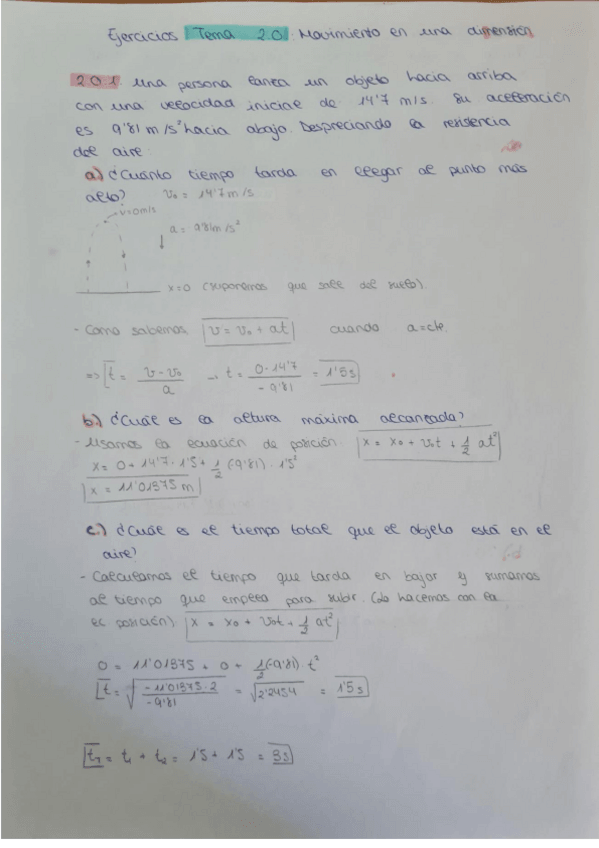 Ejercicios Tema 2.0: Movimiento en una dimensión
2.0.1. Una persona lanza un objeto hacia arriba
con una velocidad inicial de 14'7 m/s. Su aceleración
es 9'81 m/s² hacia abajo. Despreciando la resistencia
del aire
a) ¿Cuánto tiempo tarda en llegar al punto más
alto? v₀ = 14'7 m/s
v=0m/s
a = 9'81m/s²
x=0 (suponemos que sale del suelo).
- Como sabemos v = v₀ + at cuando a=cte.
=> t = (v - v₀)/a → t = (0 - 14'7)/(-9'81) = 1'5s
b.) ¿Cuál es la altura máxima alcanzada?
- Usamos la ecuación de posición. x = x₀ + v₀t + 1/2 at²
x = 0 + 14'7 · 1'5 + 1/2 (-9'81) · 1'5²
x = 11'01375 m
c.) ¿Cuál es el tiempo total que el objeto está en el
aire?
- Calculamos el tiempo que tarda en bajar y sumamos
al tiempo que emplea para subir. (Lo hacemos con la
ec posición) x = x₀ + v₀t + 1/2 at²
0 = 11'01375 + 0 + 1/2 (-9'81) t²
t = √((-11'01375 · 2)/(-9'81)) = √2'2454 = 1'5s
t_T = t₁ + t₂ = 1'5 + 1'5 = 3s